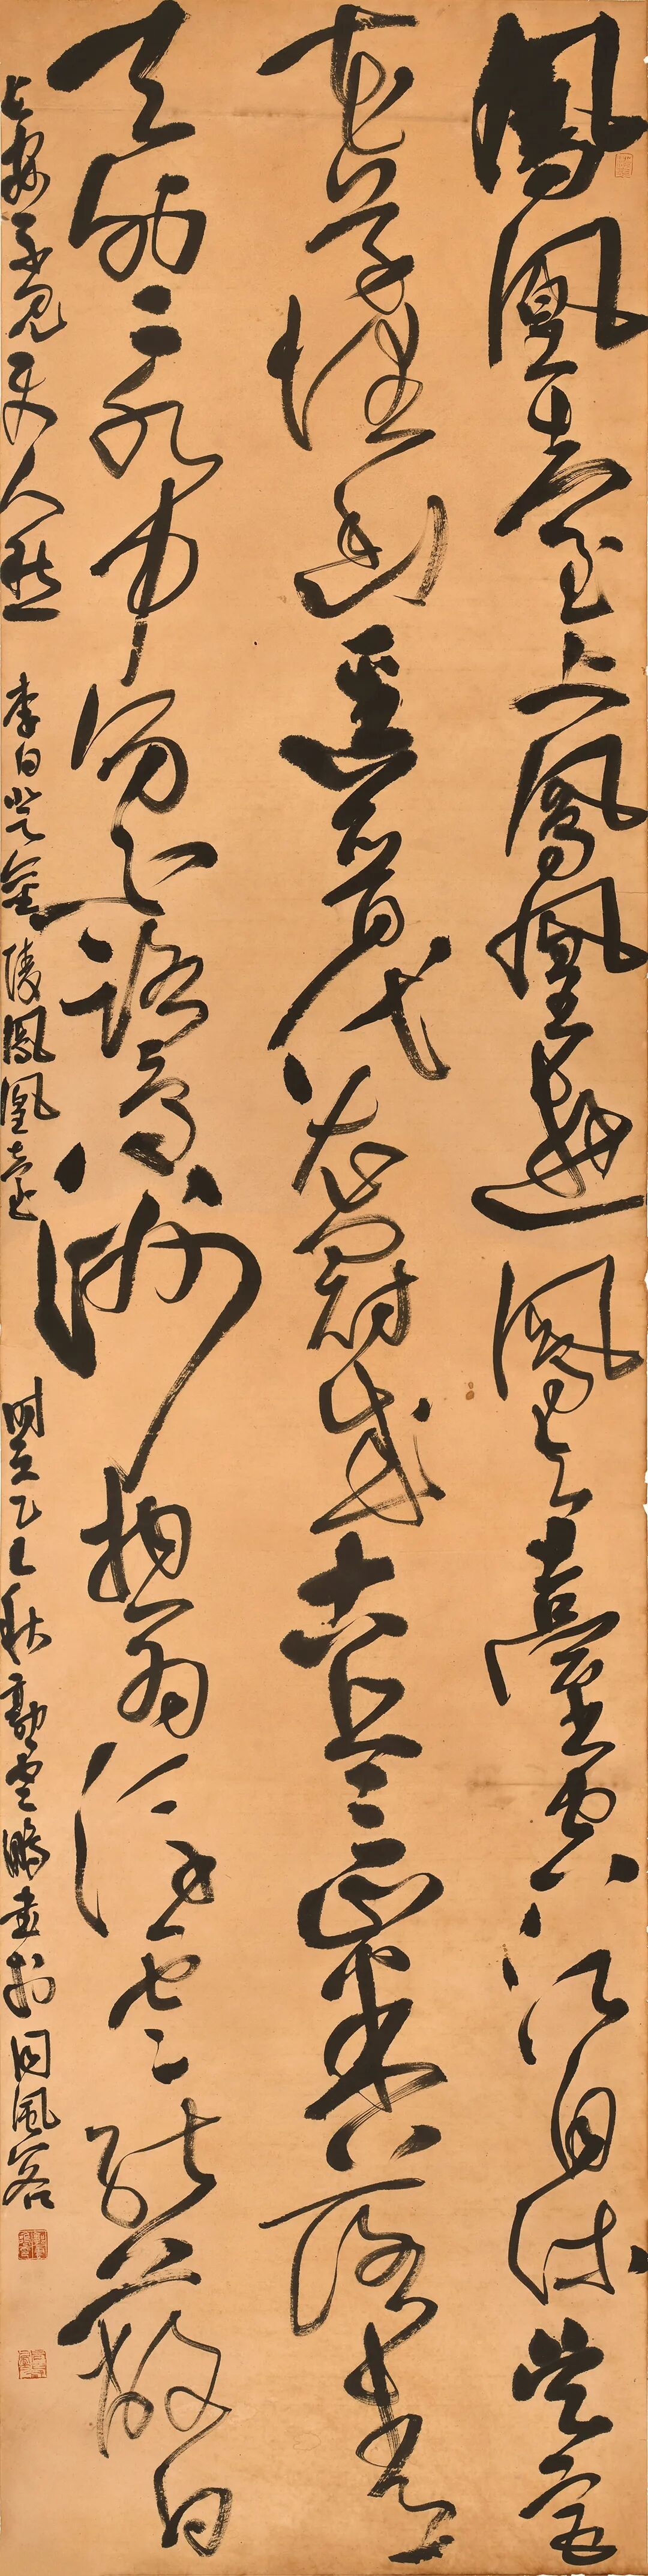 鳳凰臺上鳳凰遊鳳去臺空江自流吳宮
花草埋幽徑晉代衣冠成古丘三山半落青
天外二水中分白鷺洲總為浮雲能蔽日
長安不見使人愁 李白登金陵鳳凰臺 時在乙巳秋 雲鵬書於